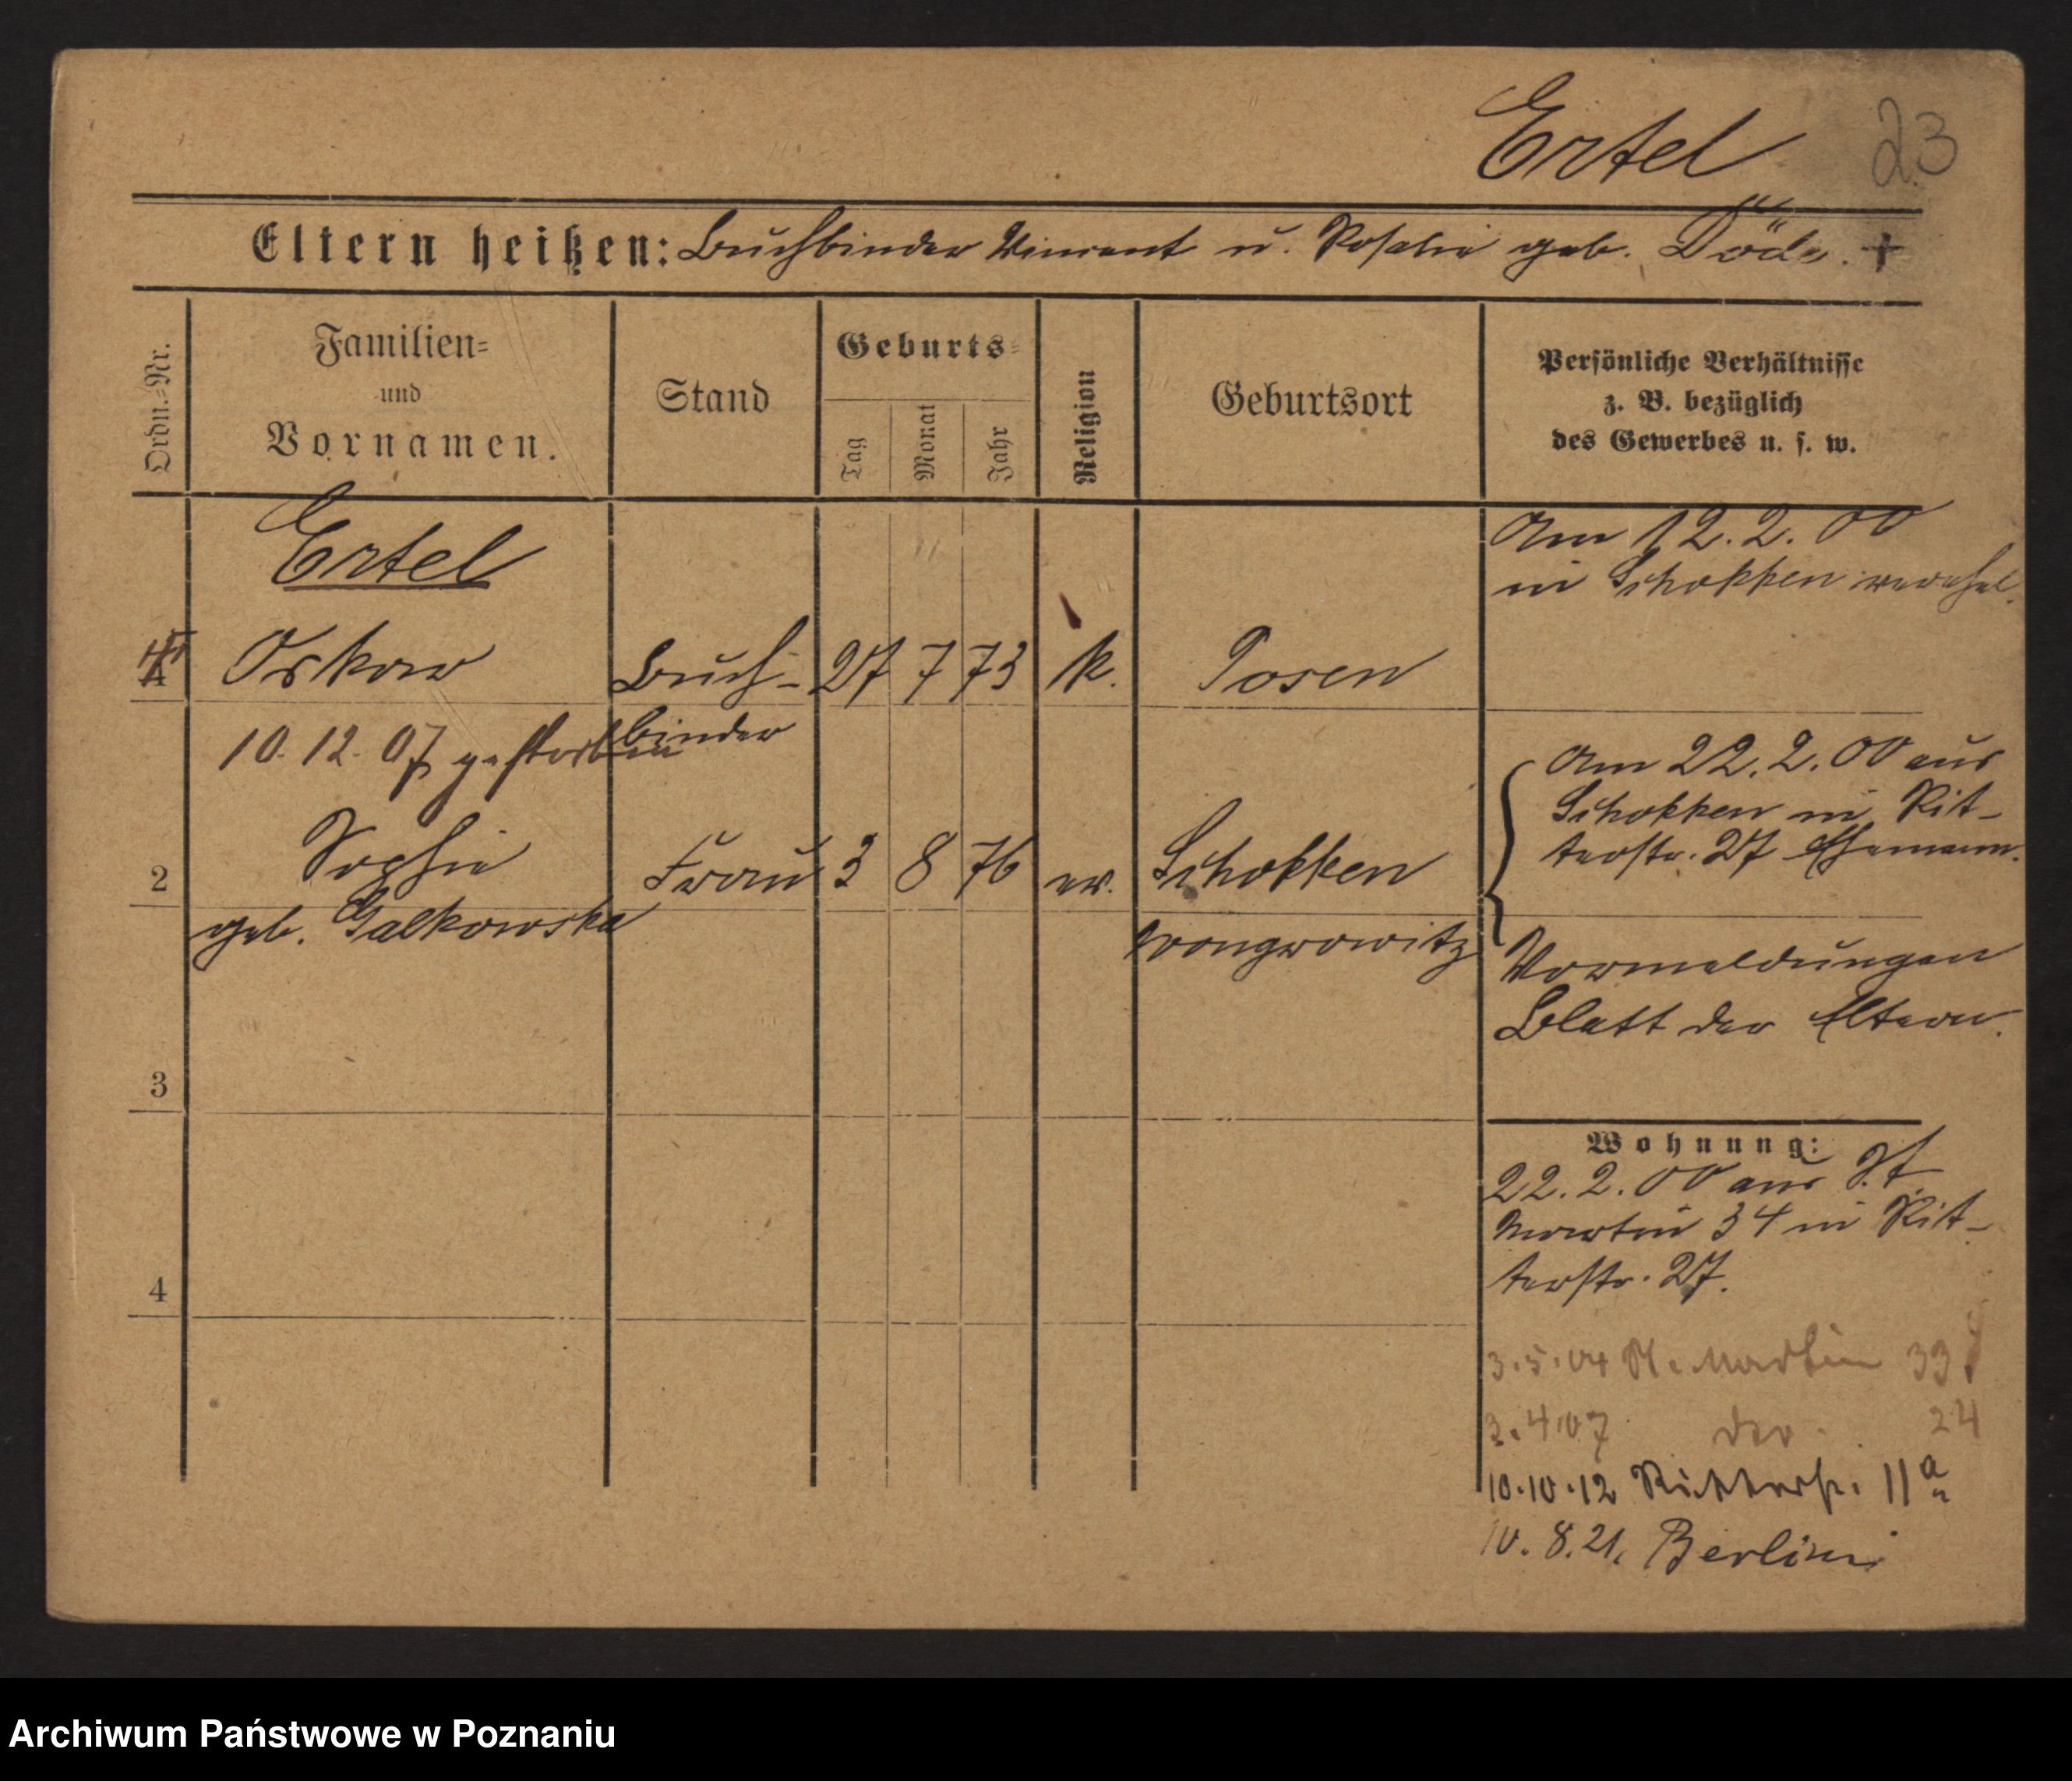 Ertel 23
Eltern heißen: Buchbinder Vincent u. Rosalie geb. Döde. †
Ordn.-Nr.
Familien-
und
Vornamen.
Stand
Geburts-
Tag
Monat
Jahr
Religion
Geburtsort
Persönliche Verhältnisse
z. B. bezüglich
des Gewerbes u. s. w.
Ertel
Oskar Buch- 27 7 73 k. Posen
binder
10. 12. 07 gestorben
2 Sophie Frau 3 8 76 ev. Schokken
geb. Galkowska Wongrowitz
3
4
Am 12. 2. 00
in Schokken verehel.
Am 22. 2. 00 aus
Schokken in Rit-
terstr. 27 Ehemann.
Vormeldungen
Blatt der Eltern.
Wohnung:
22. 2. 00 aus St.
Martin 34 in Rit-
terstr. 27.
3.5.04 St. Martin 33
3.4.07 24
10.10.12 Ritterstr. 11a
10. 8. 21. Berlin
Archiwum Państwowe w Poznaniu